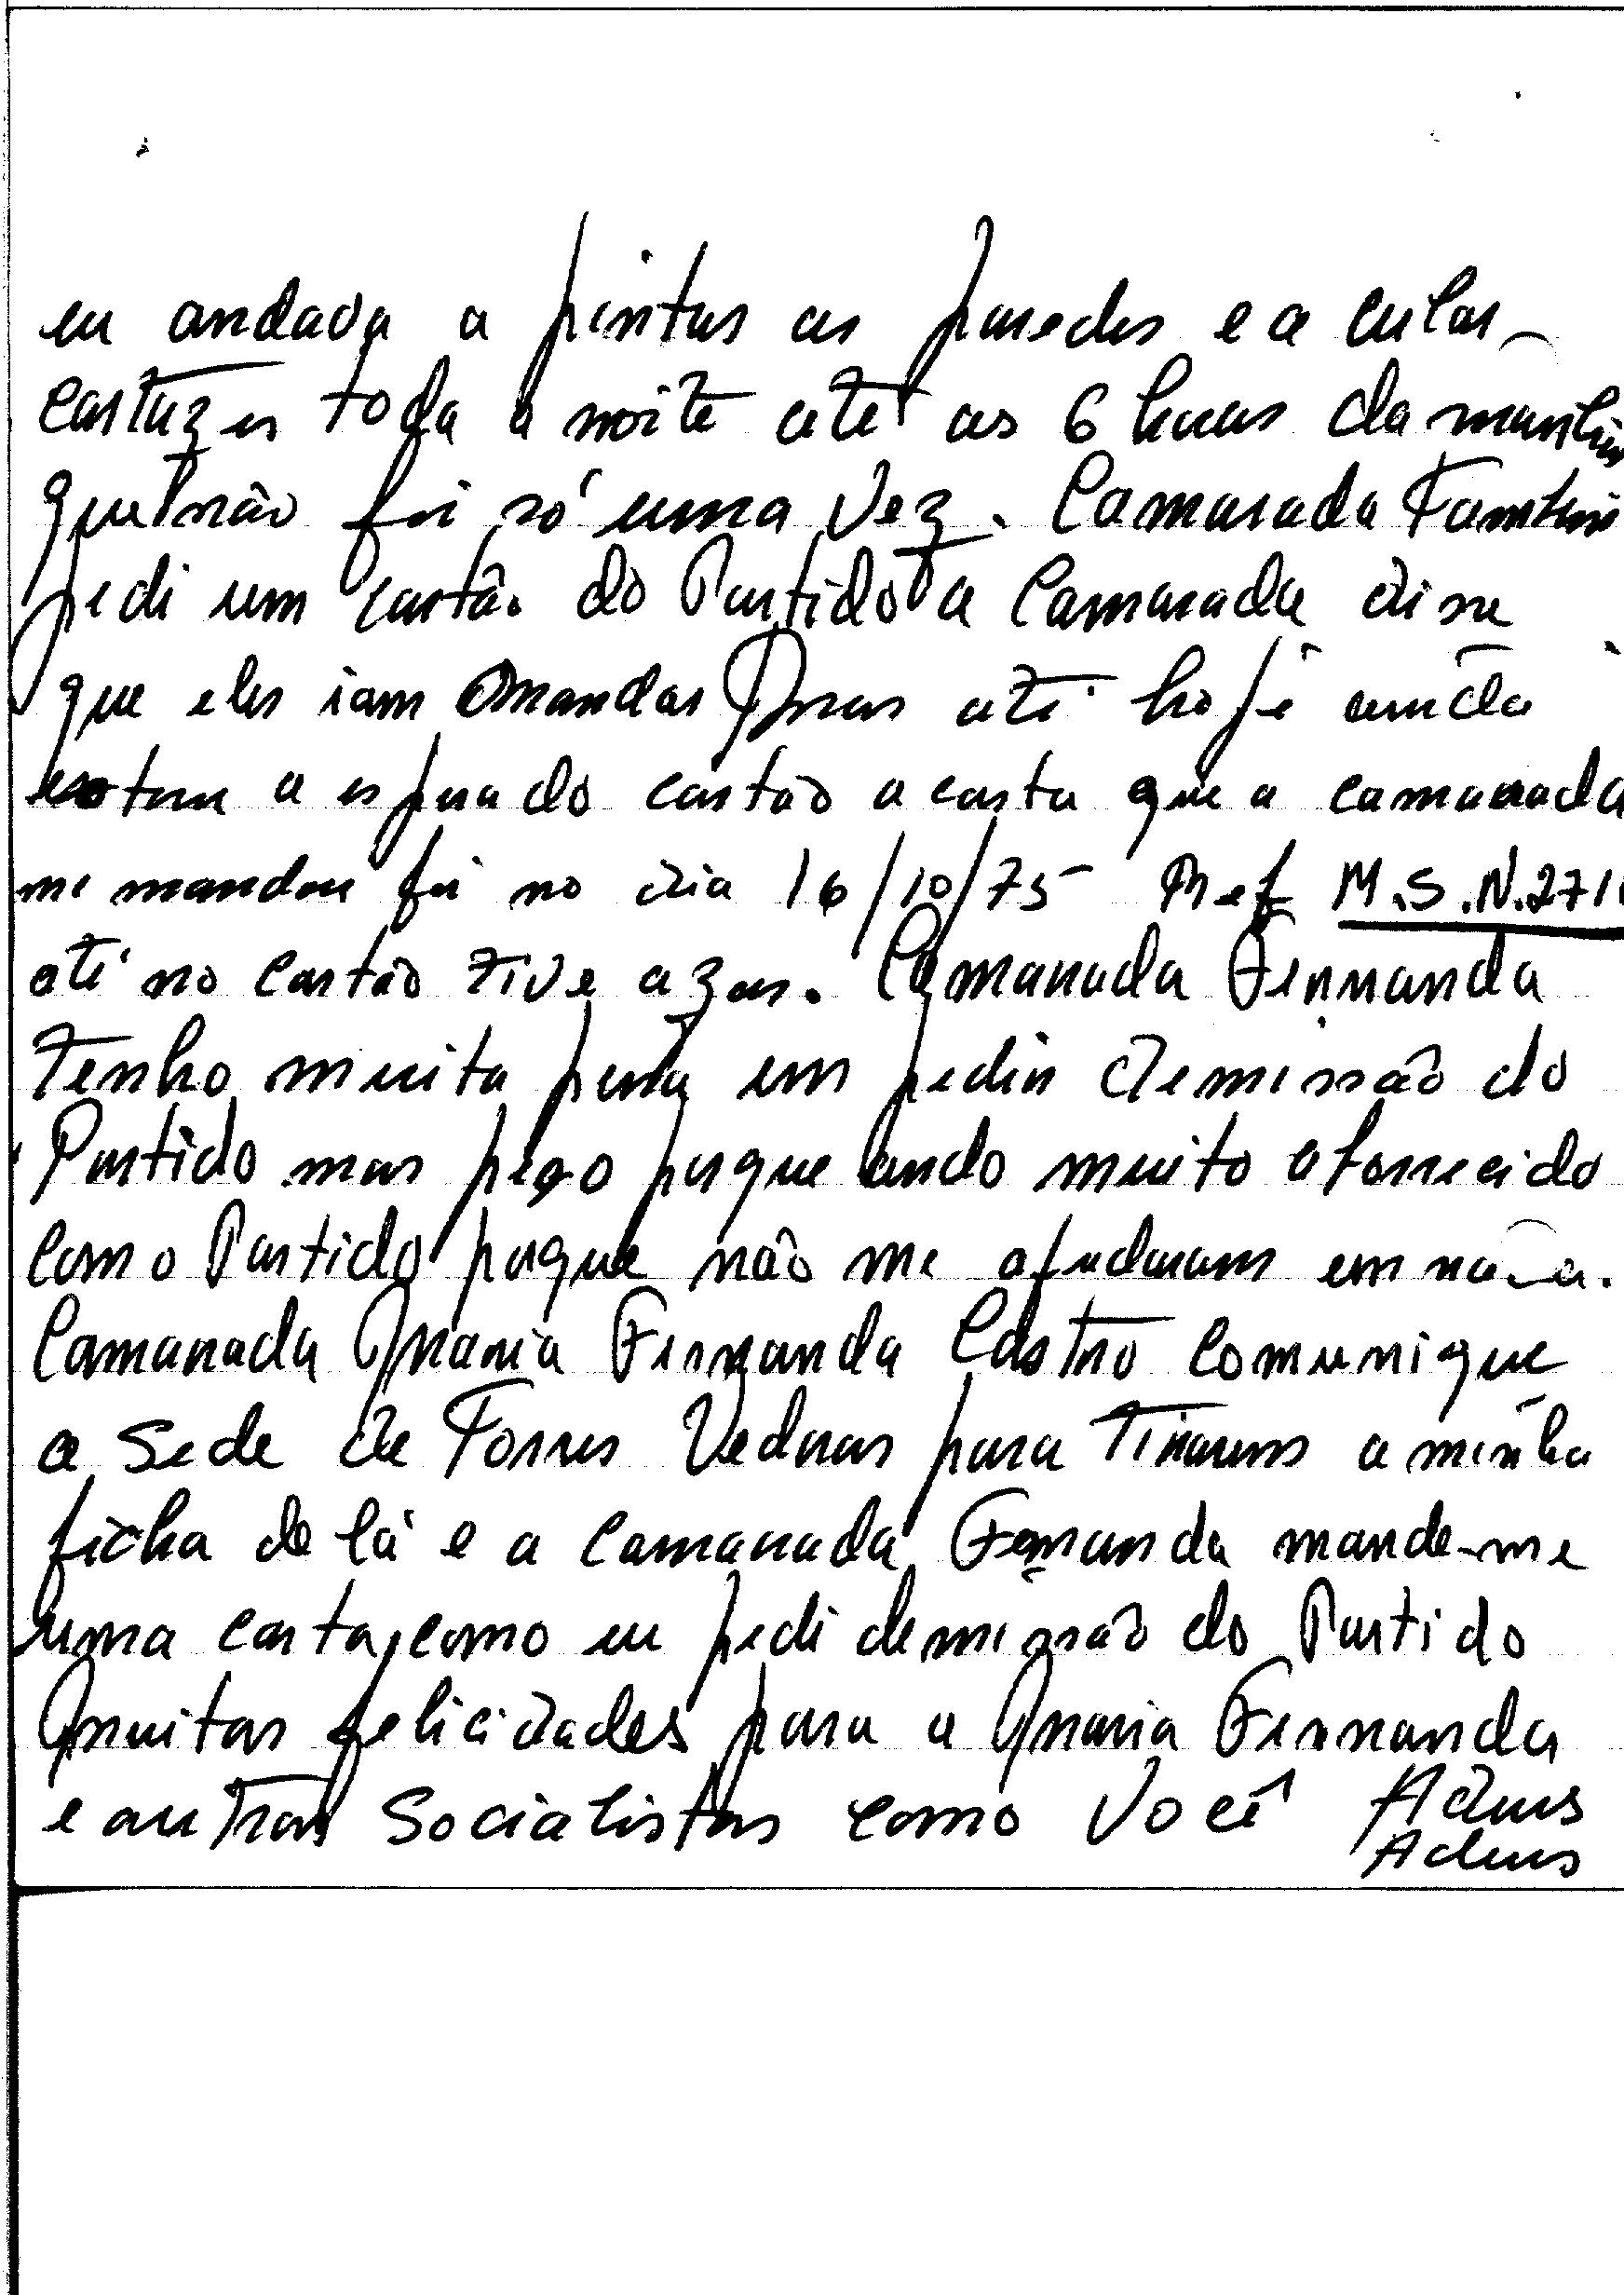 eu andava a pintar as paredes e a cular
cartazes toda a noite até as 6 horas da manhã
que não foi só uma vez. Camarada Também
pedi um cartão do Partido a Camarada disse
que eles iam Mandar Mas até hoje ainda
estou a espera do cartão a carta que a camarada
me mandou foi no dia 16/10/75 Ref M.S.N.271
até no cartão tive azar. Camarada Fernanda
Tenho muita pena em pedir demissão do
Partido mas peço porque ando muito aborrecido
com o Partido porque não me ajudaram em nada.
Camarada Maria Fernanda Castro comunique
a Sede de Torres Vedras para Tirarem a minha
ficha de lá e a Camarada Fernanda mande-me
uma carta, como eu pedi demissão do Partido
Muitas felicidades para a Maria Fernanda
e outros Socialistas como Você Adeus
Adeus